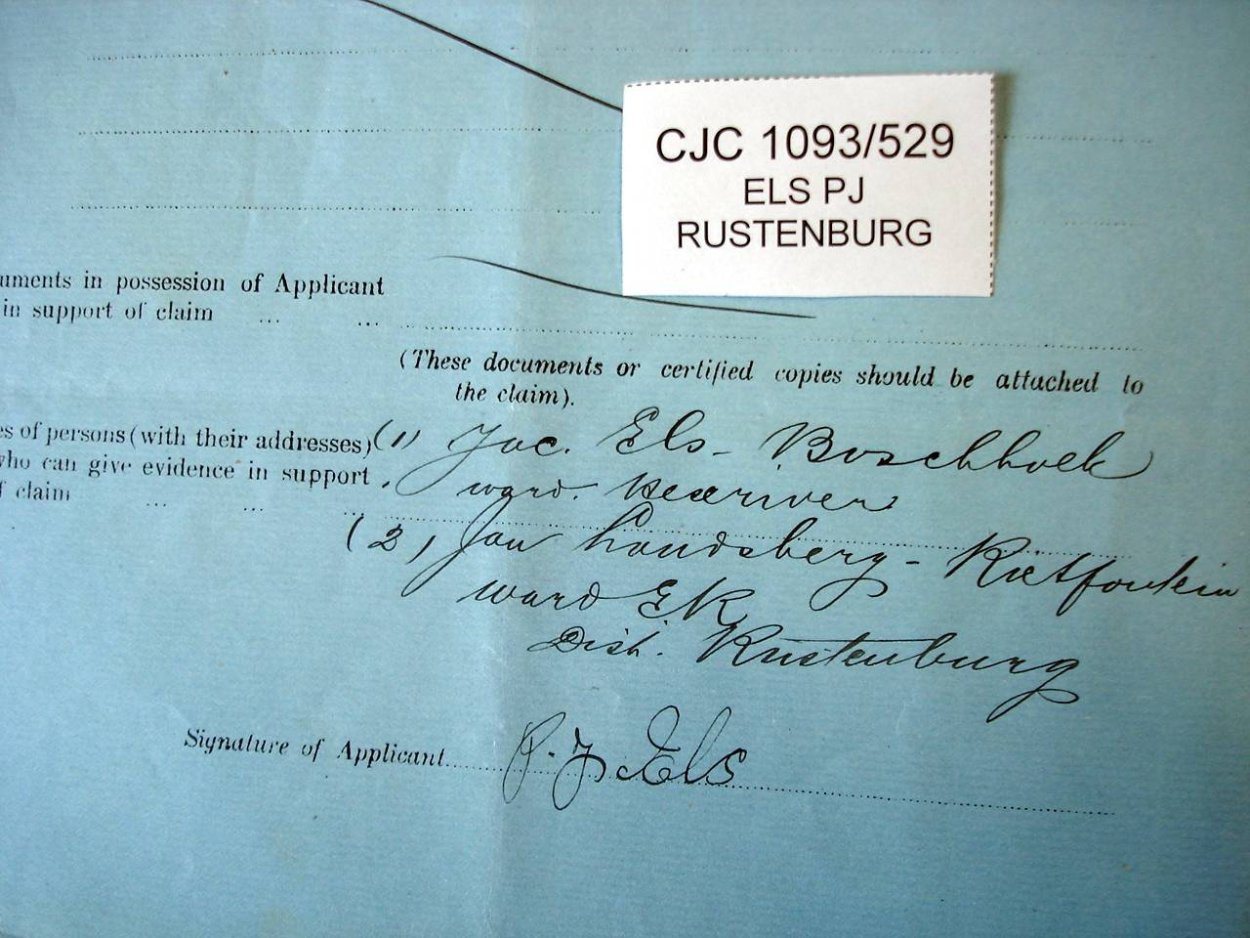 CJC 1093/529
ELS PJ
RUSTENBURG
uments in possession of Applicant
in support of claim ... ...
(These documents or certified copies should be attached to
the claim).
es of persons (with their addresses) (1) Jac. Els - Boschhoek
who can give evidence in support ward. Hexriver
f claim ... ...
(2) Jan Landsberg - Rietfontein
ward EK
Dist. Rustenburg
Signature of Applicant P. J. Els